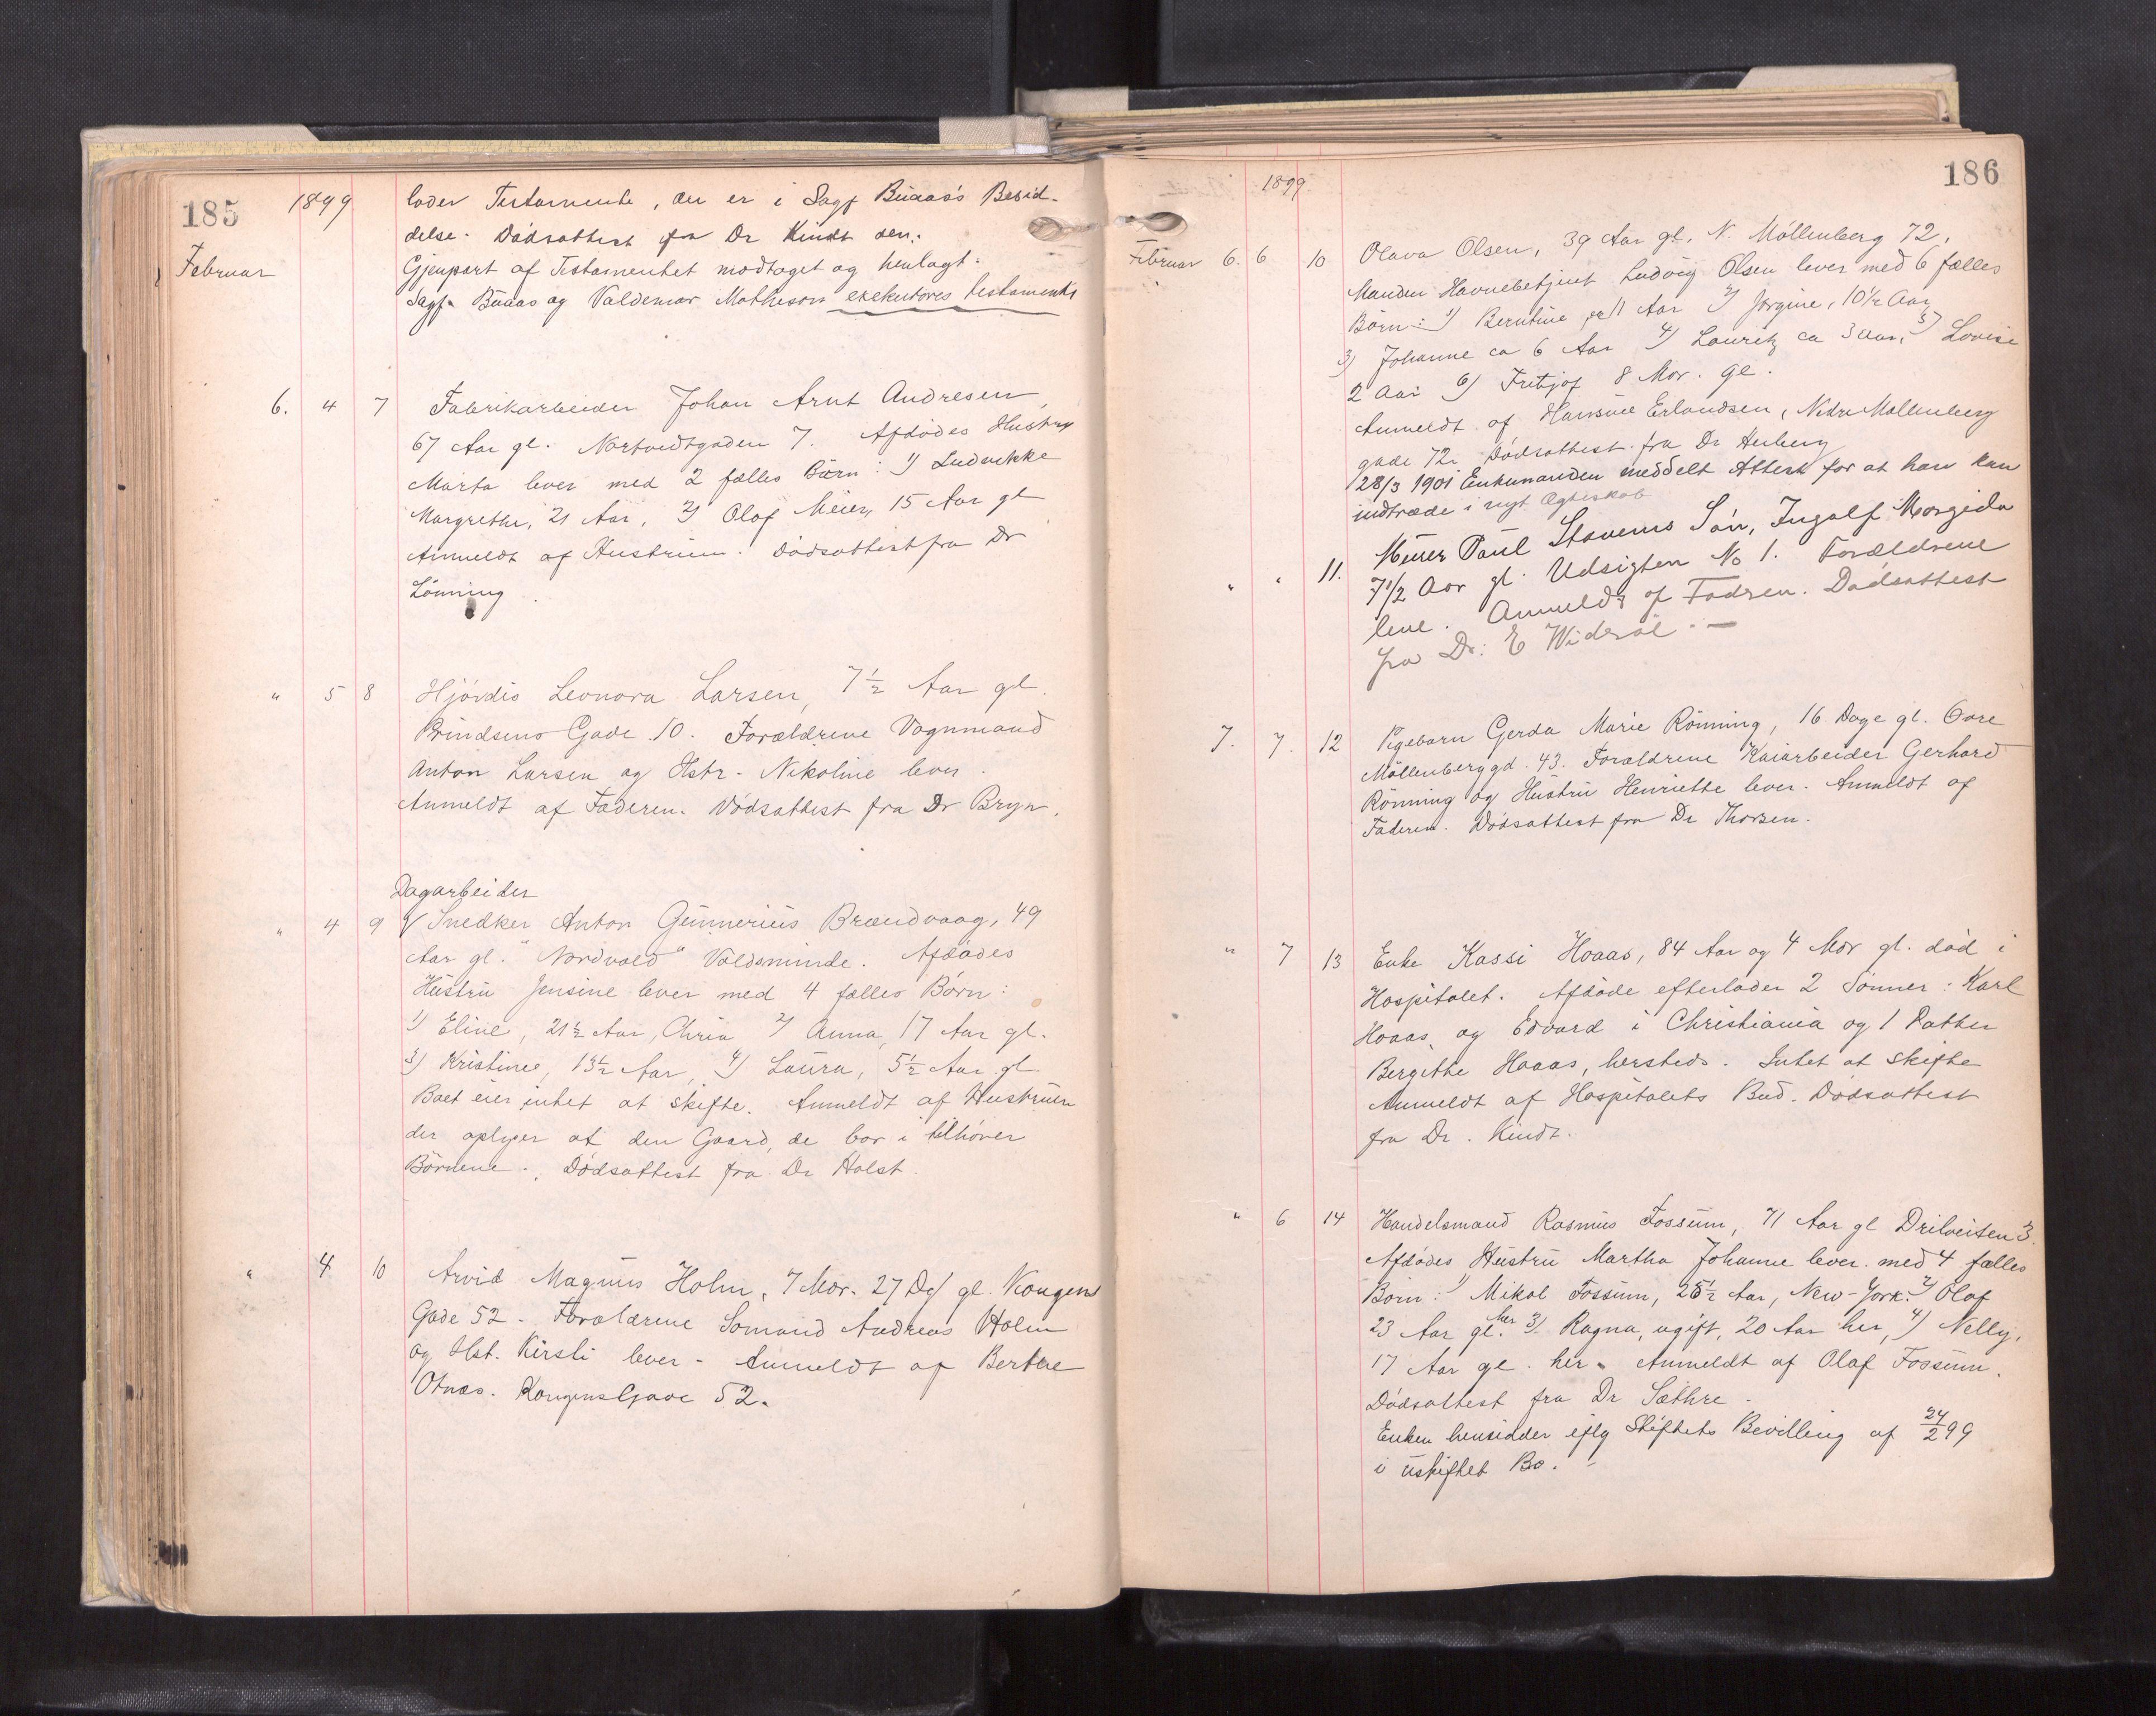 185
1899
lader Testamente, der er i Sagf Buaas's Besid-
delse. Dødsattest fra Dr Kindt sen.
Februar
Gjenpart af Testamentet modtaget og henlagt.
Sagf. Buaas og Valdemar Matheson exekutores testamenti
6. 4 7 Fabrikarbeider Johan Arnt Andresen,
67 Aar gl. Nortvedtgaden 7. Afdødes Hustru
Marta lever med 2 fælles Børn: 1) Ludvikke
Margrethe, 21 Aar, 2) Olaf Meier, 15 Aar gl
Anmeldt af Hustruen. Dødsattest fra Dr
Lønning.
" 5 8 Hjørdis Leonora Larsen, 7½ Aar gl.
Prindsens Gade 10. Forældrene Vognmand
Anton Larsen og Hstr. Nikoline lever.
Anmeldt af Faderen. Dødsattest fra Dr Bryn.
Dagarbeider
" 4 9 Snedker Anton Gunnerius Brændvaag, 49
Aar gl. "Nordvold" Voldsminde. Afdødes
Hustru Jensine lever med 4 fælles Børn:
1) Eline, 21½ Aar, Chria 2) Anna, 17 Aar gl.
3) Kristine, 13½ Aar, 4) Laura, 5½ Aar gl
Boet eier intet at skifte. Anmeldt af Hustruen
der oplyser at den Gaard, de bor i tilhører
Børnene. Dødsattest fra Dr Holst.
" 4 10 Arvid Magnus Holm, 7 Mdr. 27 Dg gl. Kongens
Gade 52. Forældrene Sømand Andreas Holm
og Hst. Kirsti lever. Anmeldt af Berthe
Otnæs. Kongens Gade 52.
186
1899
Februar 6. 6 10 Olava Olsen, 39 Aar gl. N. Møllenberg 72.
Manden Havnebetjent Ludvig Olsen lever med 6 fælles
Børn: 1) Berntine, 11 Aar 2) Jørgine, 10½ Aar
3) Johanne ca 6 Aar 4) Lauritz ca 3 aar, 5) Lovise
2 Aar 6) Fritjof 8 Mdr. gl.
Anmeldt af Erlandsen, Nedre Møllenberg
gade 72. Dødsattest fra Dr
28/3 1901 Enkemanden meddelt Attest for at han kan
indtræde i nyt Ægteskab
" " 11. Murer Paul Stavems Søn, Ingolf
7½ Aar gl. Udsigten No 1. Forældrene
leve. Anmeldt af Fadren. Dødsattest
fra Dr: E Widerøe. —
7. 7. 12 Pigebarn Gerda Marie Rønning, 16 Dage gl. Øvre
Møllenberggd. 43. Forældrene Kaiarbeider Gerhard
Rønning og Hustru Henriette lever. Anmeldt af
Faderen. Dødsattest fra Dr Thorsen.
" 7 13 Enke Kassi Hoaas, 84 Aar og 4 Mdr gl. død i
Hospitalet. Afdøde efterlader 2 Sønner: Karl
Hoaas, og Edvard i Christiania og 1 Datter
Bergithe Hoaas, hersteds. Intet at skifte
Anmeldt af Hospitalets Bud. Dødsattest
fra Dr. Kindt.
" 6 14 Handelsmand Rasmus Fossum, 71 Aar gl Dritveiten 3.
Afdødes Hustru Martha Johanne lever med 4 fælles
Børn: 1) Mikal Fossum, 25½ Aar, New-York. 2) Olaf
23 Aar gl. her 3) Ragna, ugift, 20 Aar her, 4) Nelly,
17 Aar gl. her. Anmeldt af Olaf Fossum.
Dødsattest fra Dr Sæthre.
Enken hensidder iflg Skiftets Bevilling af 24/2 99
i uskiftet Bo.